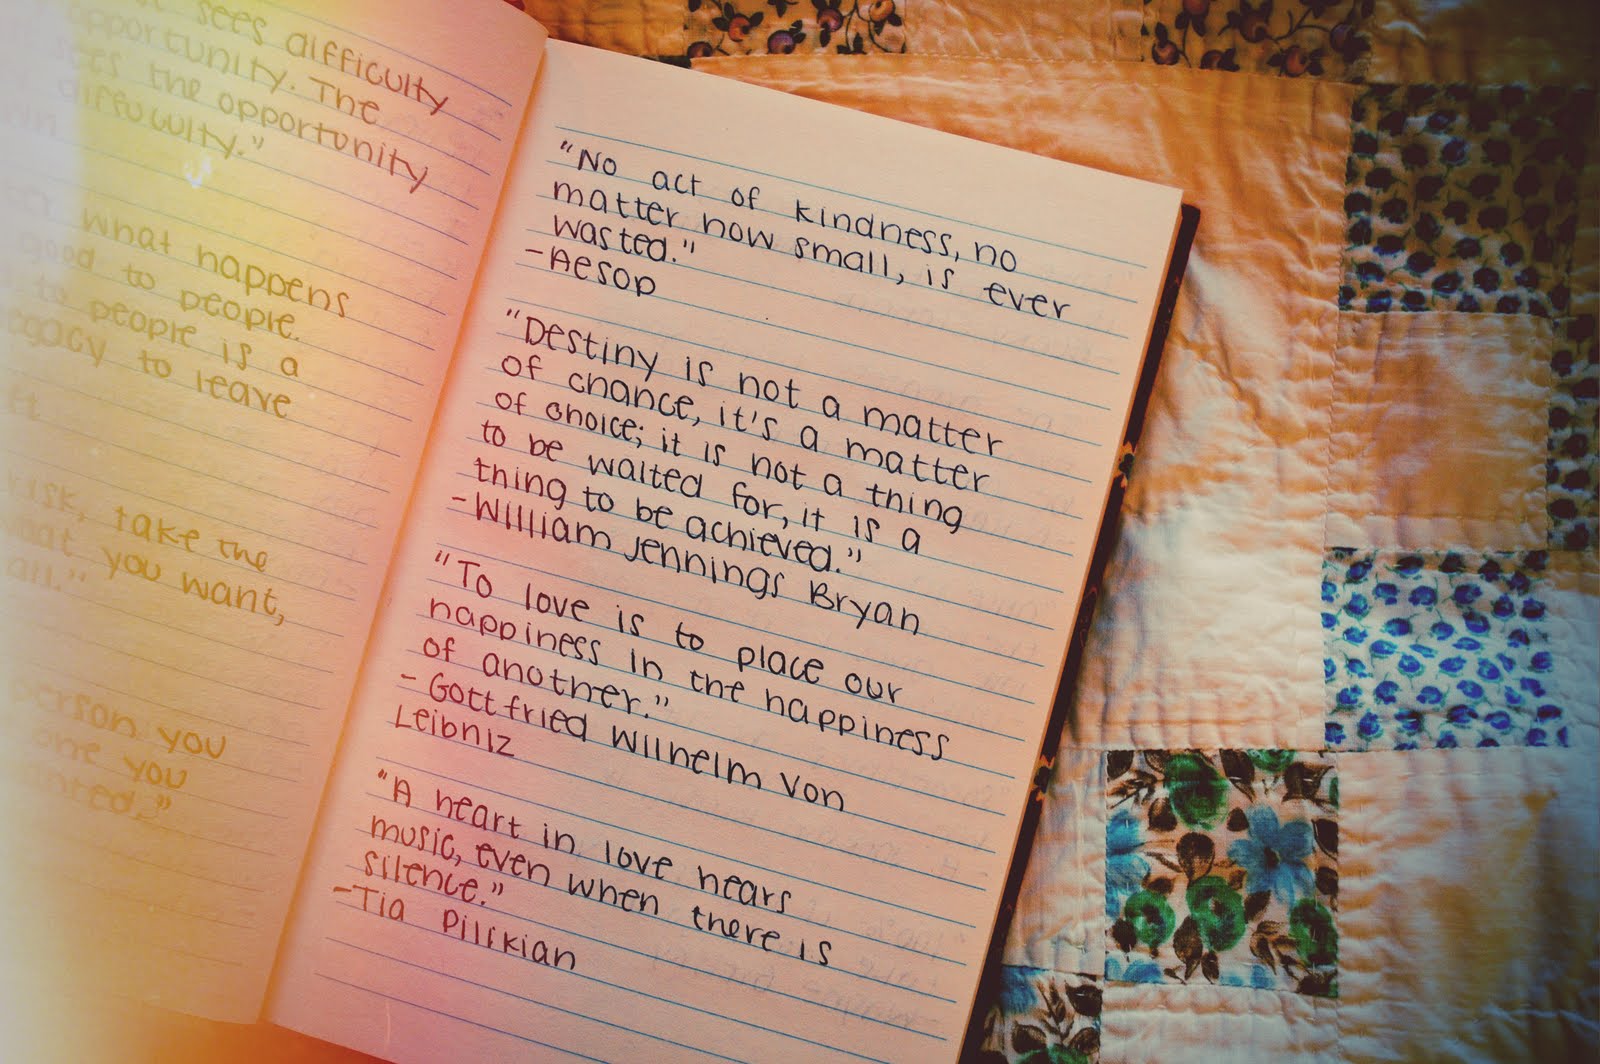 sees difficulty
opportunity. The
sees the opportunity
difficulty."
what happens
good to people.
to people is a
legacy to leave
risk, take the
what you want,
all."
person you
one you
"No act of kindness, no
matter how small, is ever
wasted."
-Aesop
"Destiny is not a matter
of chance, it's a matter
of choice; it is not a thing
to be waited for, it is a
thing to be achieved."
-William Jennings Bryan
"To love is to place our
happiness in the happiness
of another."
- Gottfried Wilhelm Von
Leibniz
"A heart in love hears
music, even when there is
silence."
-Tia Pilikian